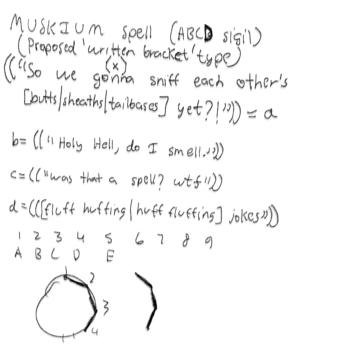 MUSKIUM spell (ABCD sigil)
(Proposed 'written bracket' type)
(x)
(("So we gonna sniff each other's
[butts/sheaths/tailbases] yet?!")) = a
b= ((" Holy Hell, do I smell."))
c= (("was that a spell? wtf"))
d= (([fluff huffing/huff fluffing] jokes"))
1 2 3 4 5 6 7 8 9
A B C D E
1 2
3
4